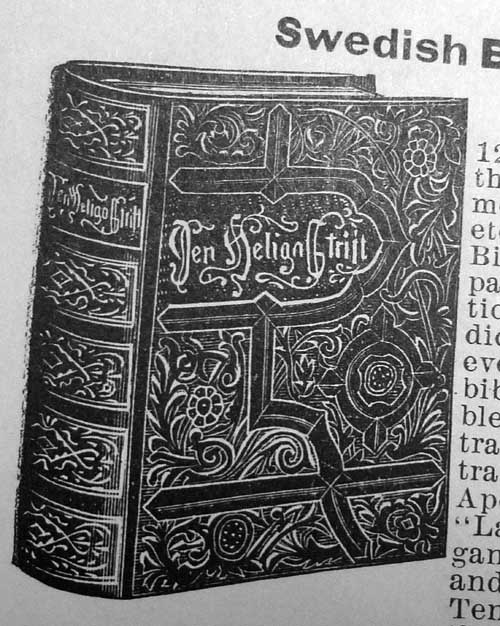 Swedish B
Den Heliga Skrift
Den Heliga Skrift
12
th
me
ete
Bi
pa
tio
dic
eve
bib
ble
tra
tra
Ap
“La
gan
and
Ten